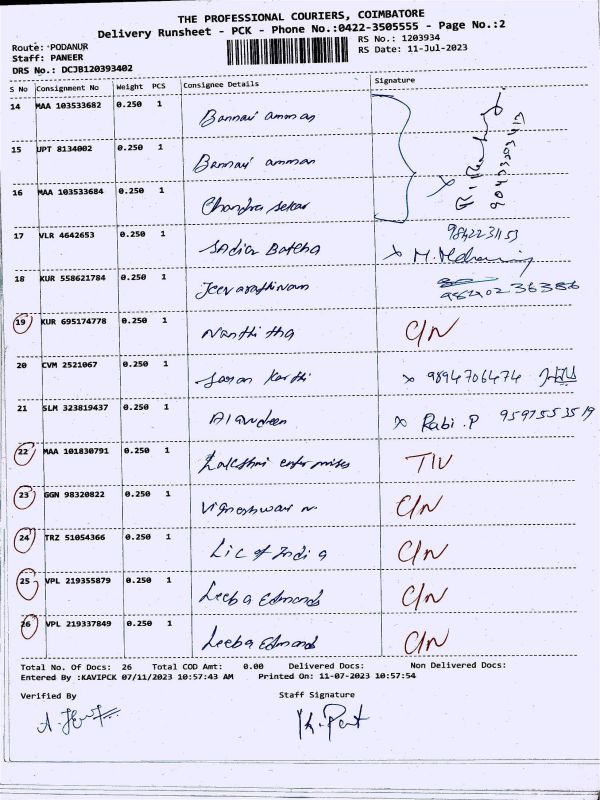 THE PROFESSIONAL COURIERS, COIMBATORE
Delivery Runsheet - PCK - Phone No.:0422-3505555 - Page No.:2
Route: PODANUR
RS No.: 1203934
Staff: PANEER
RS Date: 11-Jul-2023
DRS No.: DCJB120393402
S No Consignment No Weight PCS Consignee Details Signature
14 MAA 103533682 0.250 1 Bannari amman
15 UPT 8134002 0.250 1 Bannari amman
16 MAA 103533684 0.250 1 Chandra sekar
17 VLR 4642653 0.250 1 Sadia Battha
18 KUR 558621784 0.250 1 Jeevarathinam 9840236386
19 KUR 695174778 0.250 1 Nanthitha C/N
20 CVM 2521067 0.250 1 Saran Karthi x 9894706474
21 SLM 323819437 0.250 1 Alavdeen x Rabi.P 9597553519
22 MAA 101830791 0.250 1 Lakshmi enterprises TIV
23 GGN 98320822 0.250 1 Vigneshwar n. C/N
24 TRZ 51054366 0.250 1 Lic of India C/N
25 VPL 219355879 0.250 1 Leeba Edmonds C/N
26 VPL 219337849 0.250 1 Leeba Edmonds C/N
Total No. Of Docs: 26 Total COD Amt: 0.00 Delivered Docs: Non Delivered Docs:
Entered By :KAVIPCK 07/11/2023 10:57:43 AM Printed On: 11-07-2023 10:57:54
Verified By Staff Signature